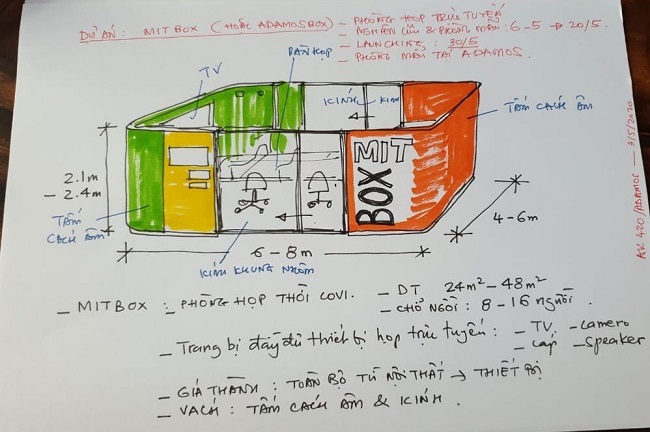 DỰ ÁN: MITBOX (HOẶC ADAMOSBOX)
- PHÒNG HỌP TRỰC TUYẾN
- NGHIÊN CỨU & PHÒNG MẪU: 6-5 → 20/5
- LAUNCHING: 30/5
- PHÒNG MẪU TẠI ADAMOS.
TV
BÀN HỌP
KÍNH
KÍNH
TẤM CÁCH ÂM
2.1m
- 2.4m
MIT
BOX
TẤM
CÁCH ÂM
4-6m
6-8m
KÍNH KHUNG NHÔM
AK 420/ADAMOS - 3/5/2020
- MITBOX: PHÒNG HỌP THỜI COVI.
- DT 24m² - 48m²
- CHỔ NGỒI: 8-16 người.
- Trang bị đầy đủ thiết bị họp trực tuyến:
- TV. - Camera
- cáp - Speaker
- GIÁ THÀNH: TOÀN BỘ TỪ NỘI THẤT → THIẾT BỊ
- VÁCH: TẤM CÁCH ÂM & KÍNH.